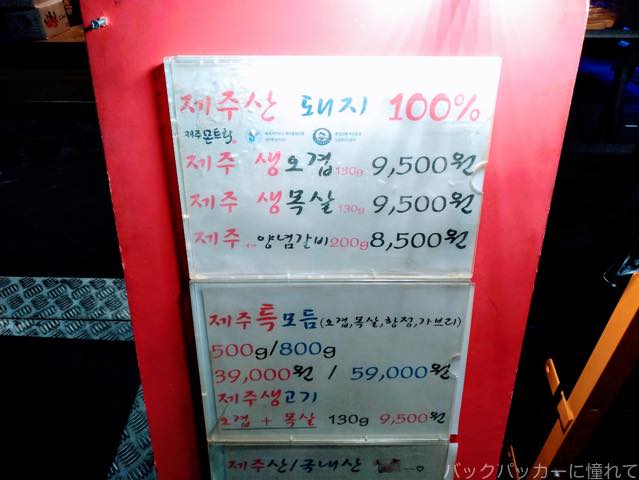 제주산 돼지 100%
제주몬트락
제주 생오겹 130g 9,500원
제주 생목살 130g 9,500원
제주 양념갈비 200g 8,500원
제주특모듬(오겹,목살,항정,가브리)
500g/800g
39,000원 / 59,000원
제주생고기
오겹 + 목살 130g 9,500원
제주산/국내산
バックパッカーに憧れて